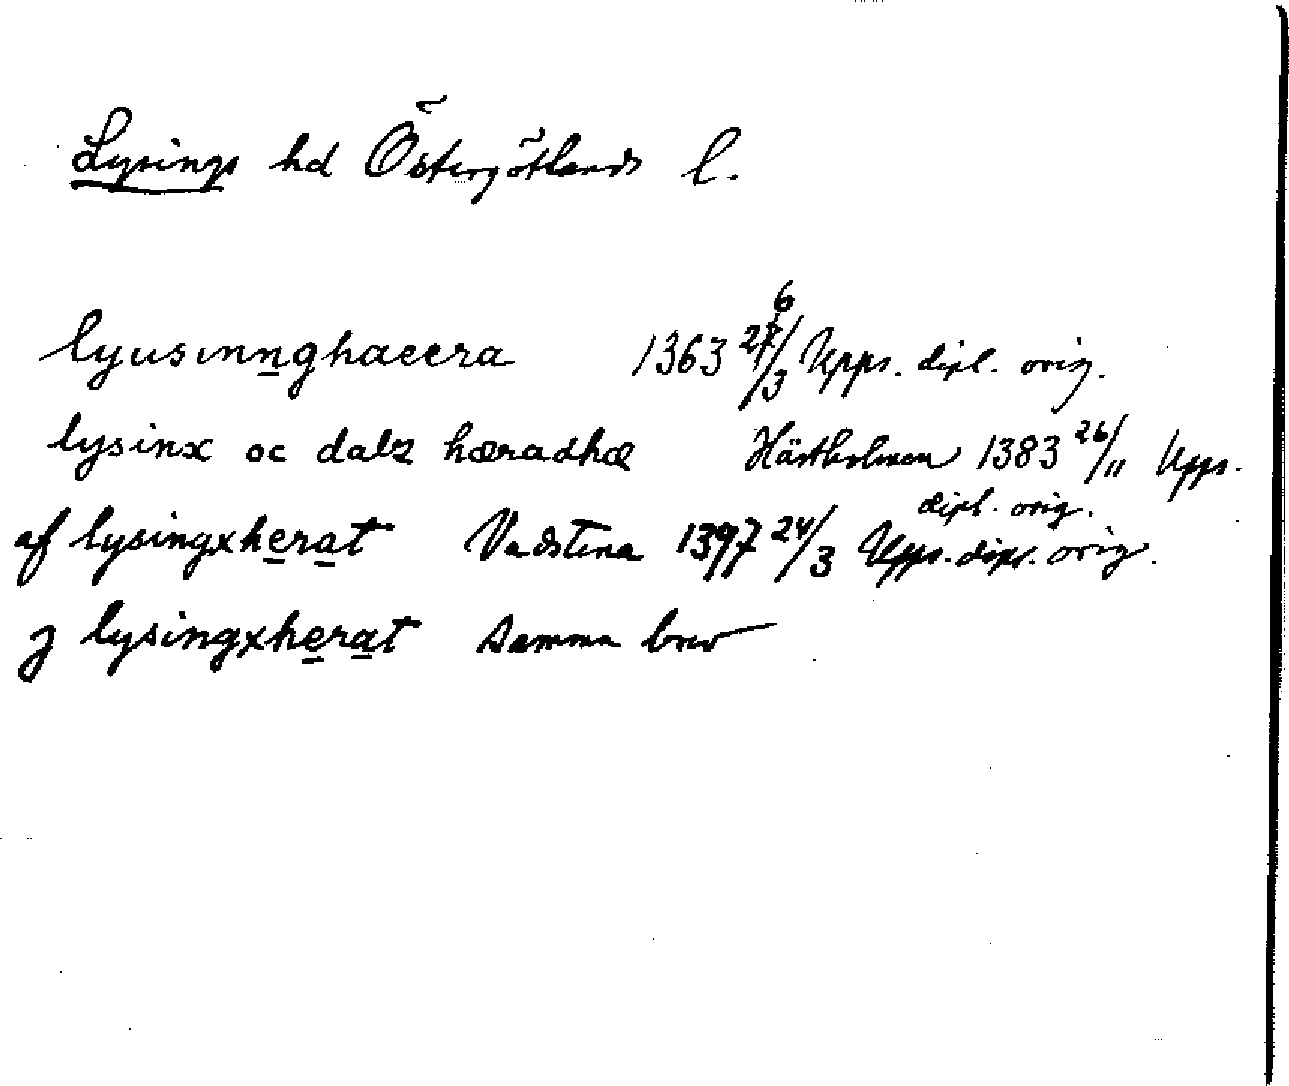 Lysings hd Östergötlands l.
lyusinnghaeera 1363 26/3 Upps. dipl. orig.
lysinx oc dalz hæradhæ Hästholmen 1383 26/11 Upps. dipl. orig.
af lysingxherat Vadstena 1397 24/3 Upps. dipl. orig.
j lysingxherat samma brev